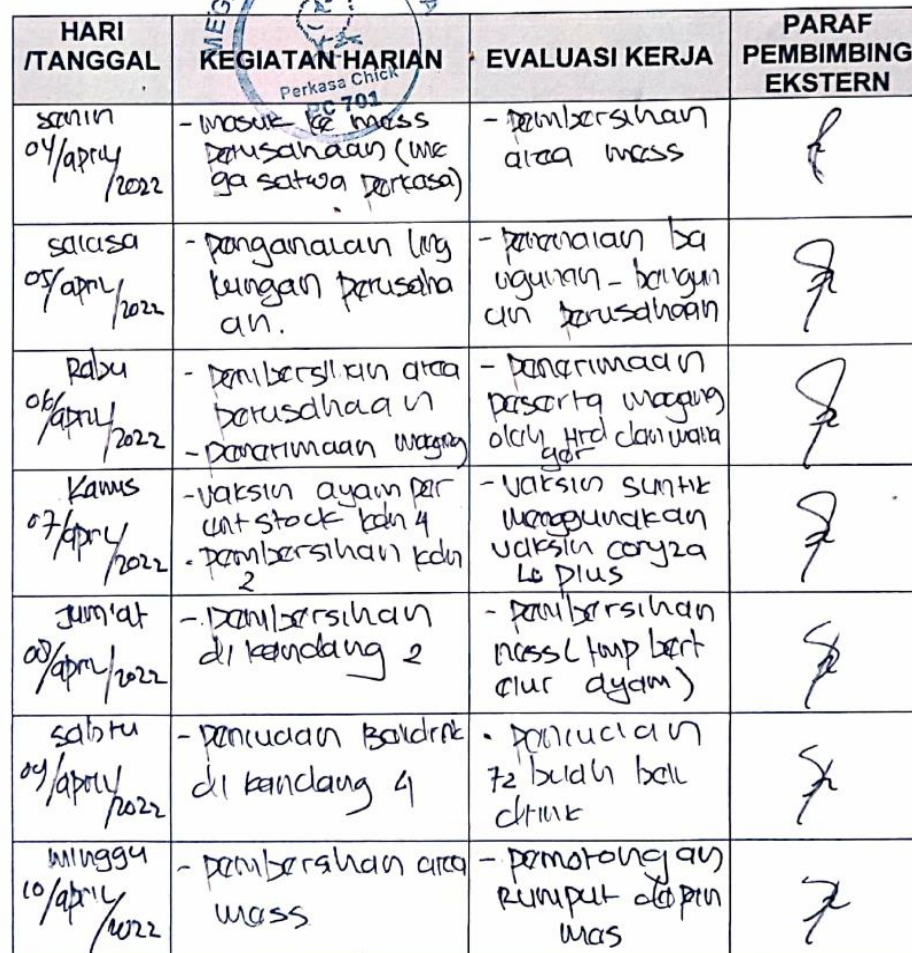 MEG
HARI
/TANGGAL
KEGIATAN HARIAN
EVALUASI KERJA
PARAF
PEMBIMBING
EKSTERN
Perkasa Chick
PC 701
senin
04/april/2022
- masuk ke mess
perusahaan (me
ga satwa perkasa)
- pembersihan
area mess
selasa
05/april/2022
- pengenalan ling
kungan perusaha
an.
- pengenalan ba
ngunan - bangun
an perusahaan
Rabu
06/april/2022
- pembersihan area
perusahaan
- penerimaan magang
- penerimaan
peserta magang
oleh Hrd dan mana
ger
Kamis
07/april/2022
- vaksin ayam par
ent stock kdn 4
- pembersihan kdn
2
- vaksin suntik
menggunakan
vaksin coryza
plus
Jum'at
08/april/2022
- pembersihan
di kandang 2
- pembersihan
ness (tmp bert
elur ayam)
sabtu
09/april/2022
- pencucian
di kandang 4
- pencucian
72 buah bell
drink
minggu
10/april/2022
- pembersihan area
mess
- pemotongan
Rumput
mas